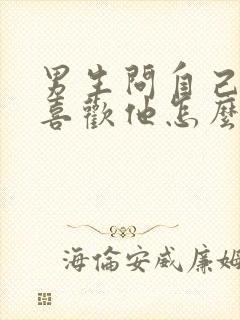 男生問自己
喜歡他怎麼
海倫安威廉姆